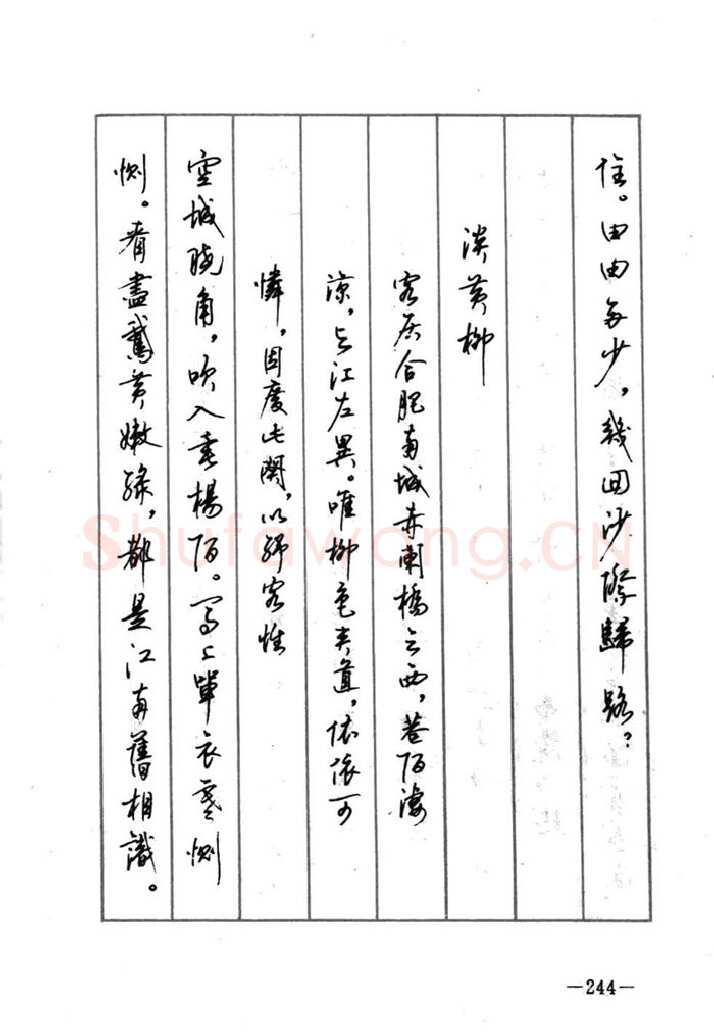 住。田田多少，幾回沙際歸路？
淡黃柳
客居合肥南城赤闌橋之西，巷陌淒
涼，与江左異。唯柳色夹道，依依可
憐，因度此闋，以纾客懷
空城曉角，吹入垂楊陌。馬上單衣寒惻
惻。看盡鵞黃嫩綠，都是江南舊相識。
—244—
Shufawang.CN